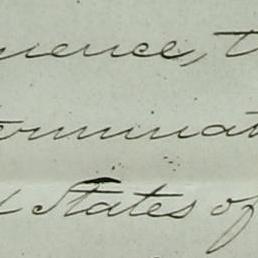 uence, t
terminat
d States of